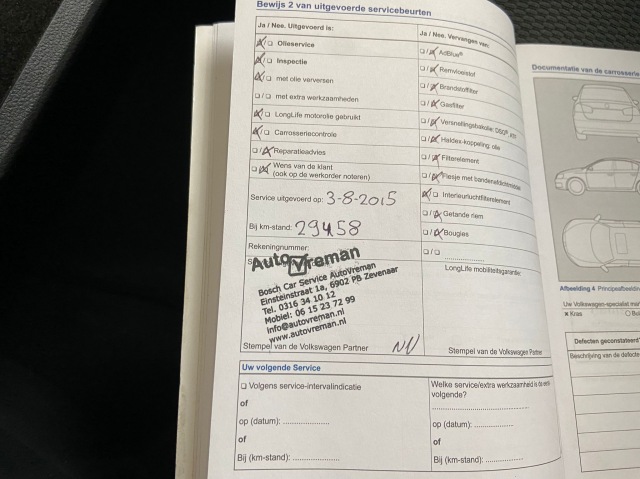 Bewijs 2 van uitgevoerde servicebeurten
Ja / Nee. Uitgevoerd is:
Olieservice
Inspectie
met olie verversen
met extra werkzaamheden
LongLife motorolie gebruikt
Carrosseriecontrole
Reparatieadvies
Wens van de klant
(ook op de werkorder noteren)
Service uitgevoerd op: 3-8-2015
Bij km-stand: 29458
Rekeningnummer:
AutoVreman
Bosch Car Service AutoVreman
Einsteinstraat 1a, 6902 PB Zevenaar
Tel. 0316 34 10 12
Mobiel: 06 15 23 72 99
info@autovreman.nl
www.autovreman.nl
Stempel van de Volkswagen Partner
Ja / Nee. Vervangen van:
AdBlue®
Remvloeistof
Brandstoffilter
Gasfilter
Versnellingsbakolie: DSG®,
Haldex-koppeling: olie
Filterelement
Flesje met bandenafdichtmiddel
Interieurluchtfilterelement
Getande riem
Bougies
LongLife mobiliteitsgarantie:
Stempel van de Volkswagen Partner
Uw volgende Service
Volgens service-intervalindicatie
of
op (datum):
of
Bij (km-stand):
Welke service/extra werkzaamheid is de
volgende?
op (datum):
of
Bij (km-stand):
Documentatie van de carrosserie
Afbeelding 4 Principeafbeelding
Uw Volkswagen-specialist
× Kras
Defecten geconstateerd
Beschrijving van de defecte